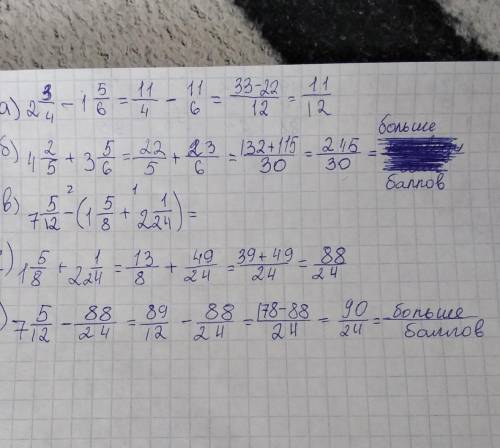 а) 2 3/4 − 1 5/6 = 11/4 − 11/6 = 33−22/12 = 11/12
б) 4 2/5 + 3 5/6 = 22/5 + 23/6 = 132+115/30 = 245/30 = больше баллов
в) 7 5/12 −² (1 5/8 +¹ 2 1/24) =
) 1 5/8 + 2 1/24 = 13/8 + 49/24 = 39+49/24 = 88/24
) 7 5/12 − 88/24 = 89/12 − 88/24 = 178−88/24 = 90/24 = больше баллов